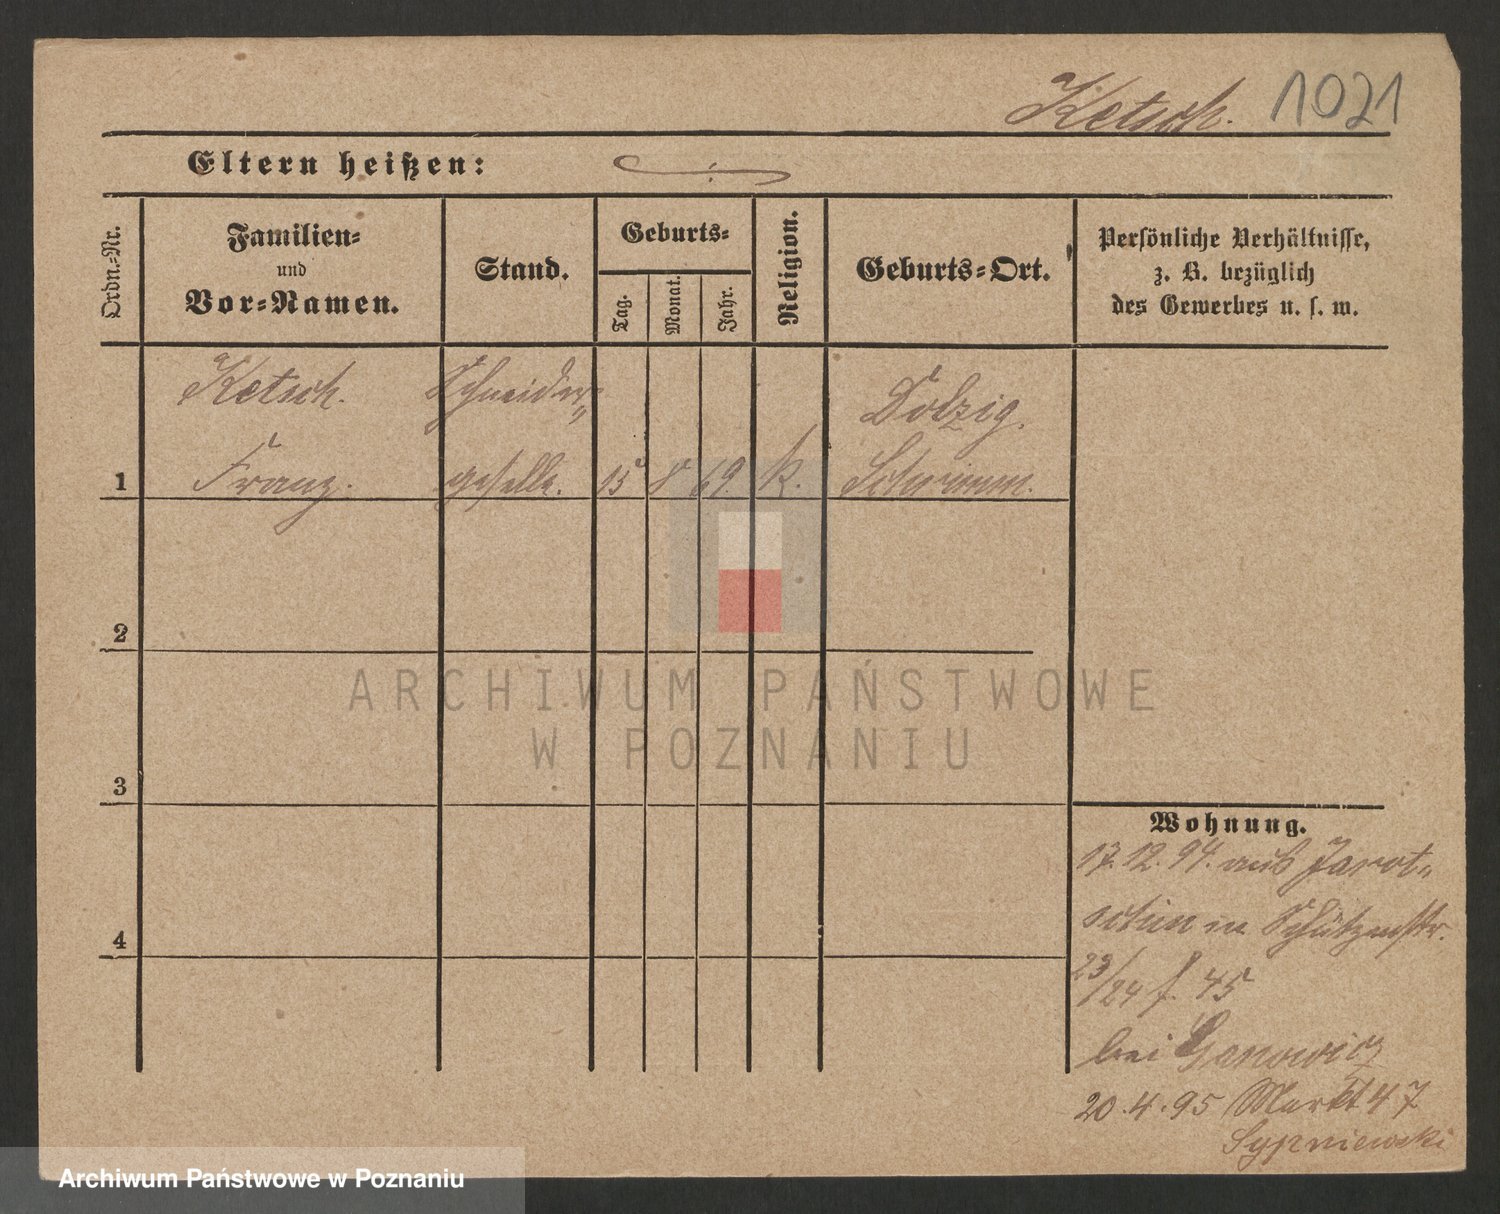 Ketsch. 1021
Eltern heißen:
Ordn.-Nr.
Familien-
und
Vor-Namen.
Stand.
Geburts-
Tag.
Monat.
Jahr.
Religion.
Geburts-Ort.
Persönliche Verhältnisse,
z. B. bezüglich
des Gewerbes u. s. w.
Ketsch. Schneider- Dolzig.
1 Franz. geselle. 15 8 69. k. Schrimm.
2
3
4
Wohnung.
17.12.94. aus Jarot-
schin in Schützenstr.
23/24 f. 45
bei
20.4.95 Markt 47
Sypniewski
ARCHIWUM PAŃSTWOWE
W POZNANIU
Archiwum Państwowe w Poznaniu